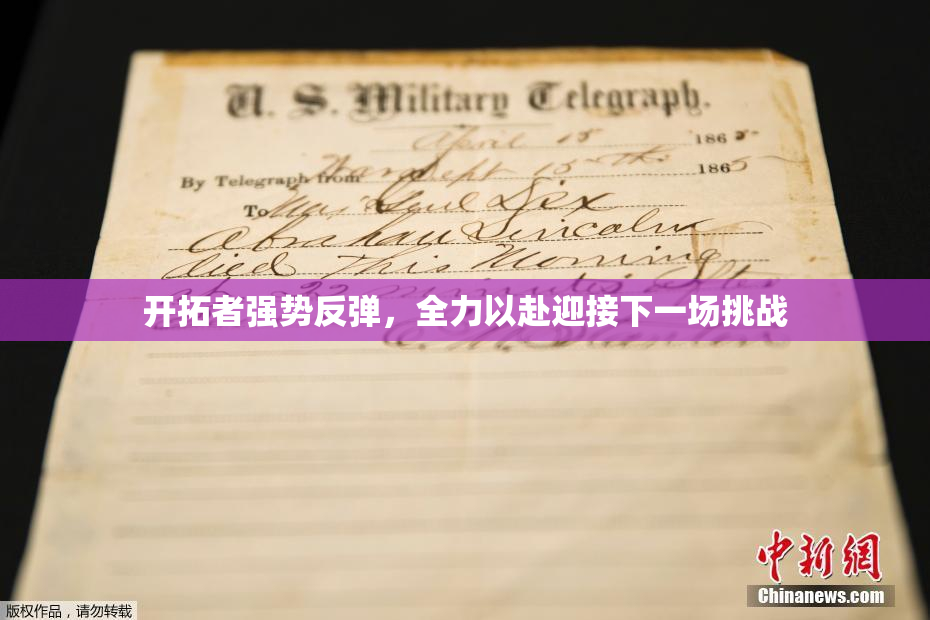 U. S. Military Telegraph.
April 15 1865
By Telegraph from War Dept 15th 1865
To Maj Genl Dix
Abraham Lincoln
died this Morning
at 22 minutes after
开拓者强势反弹，全力以赴迎接下一场挑战
E. M. Stanton
中新网
Chinanews.com
版权作品，请勿转载